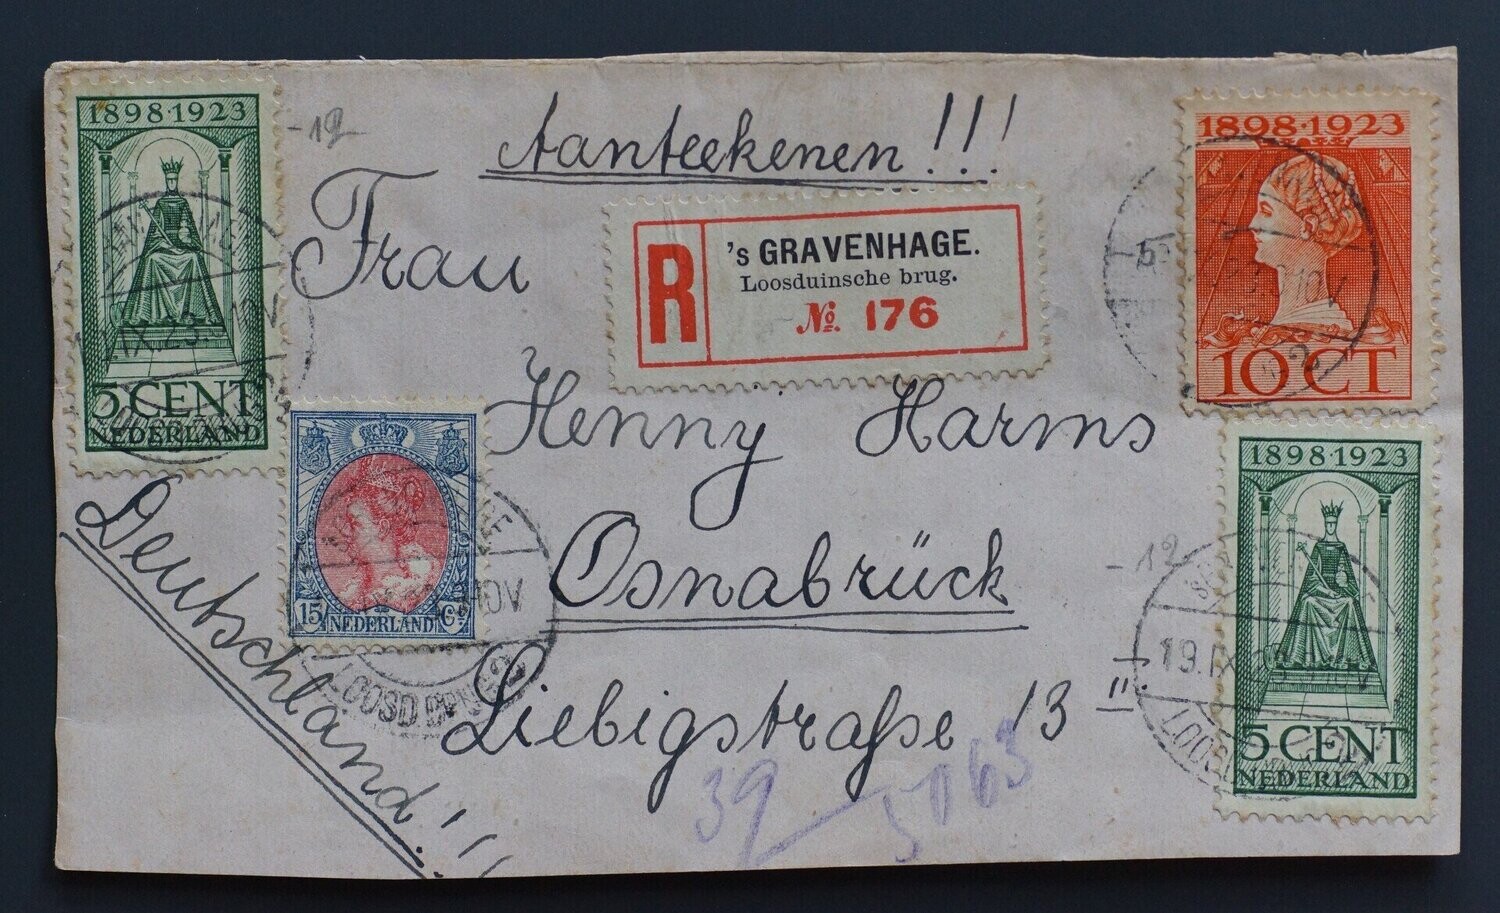 1898·1923
5 CENT
NEDERLAND
-12
Aanteekenen!!!
R
's GRAVENHAGE.
Loosduinsche brug.
No. 176
1898·1923
10 CT
Frau
Henny Harms
Osnabrück
Liebigstraße 13 II.
Deutschland!!
15 Ct
NEDERLAND
10V
LOOSD
-12
1898·1923
5 CENT
NEDERLAND
19.IX.23
39
5063